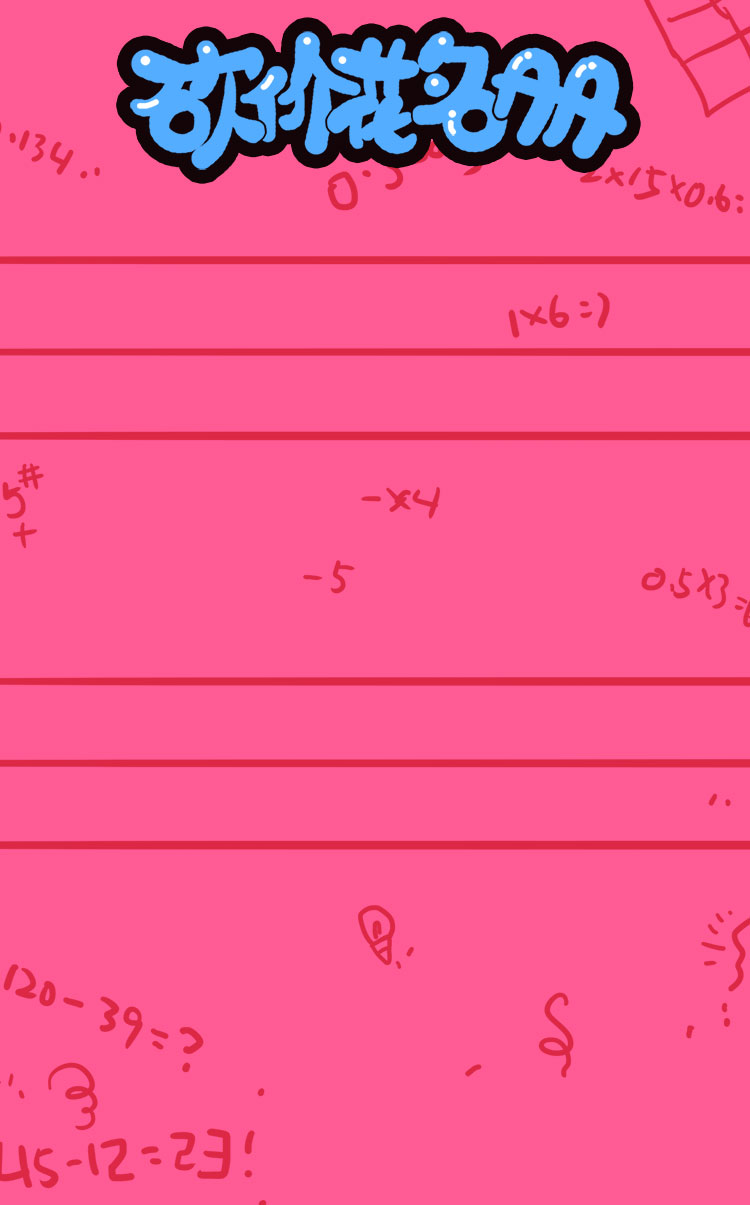 砍价花名册
.134..
0.5
2×15×0.6:
1×6=)
5#
+
-×4
-5
0.5×3=
120-39=?
45-12=23!